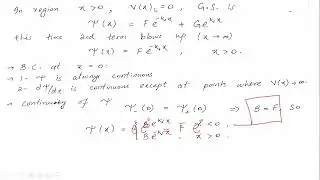 In region x > 0, V(x) = 0, G.S. is
Ψ(x) = F e^{-k₁x} + G e^{k₁x}
this time 2nd term blows up (x → ∞)
Ψ(x) = F e^{-k₁x}, x > 0.
→ B.C. at x = 0.
1- Ψ is always continuous
2- dΨ/dx is continuous except at points where V(x) → ∞
→ continuity of Ψ Ψ₁(0) = Ψ₂(0) ⇒ B = F. So
Ψ(x) = { B e^{k₁x} F x < 0
B e^{-k₁x}, x > 0.